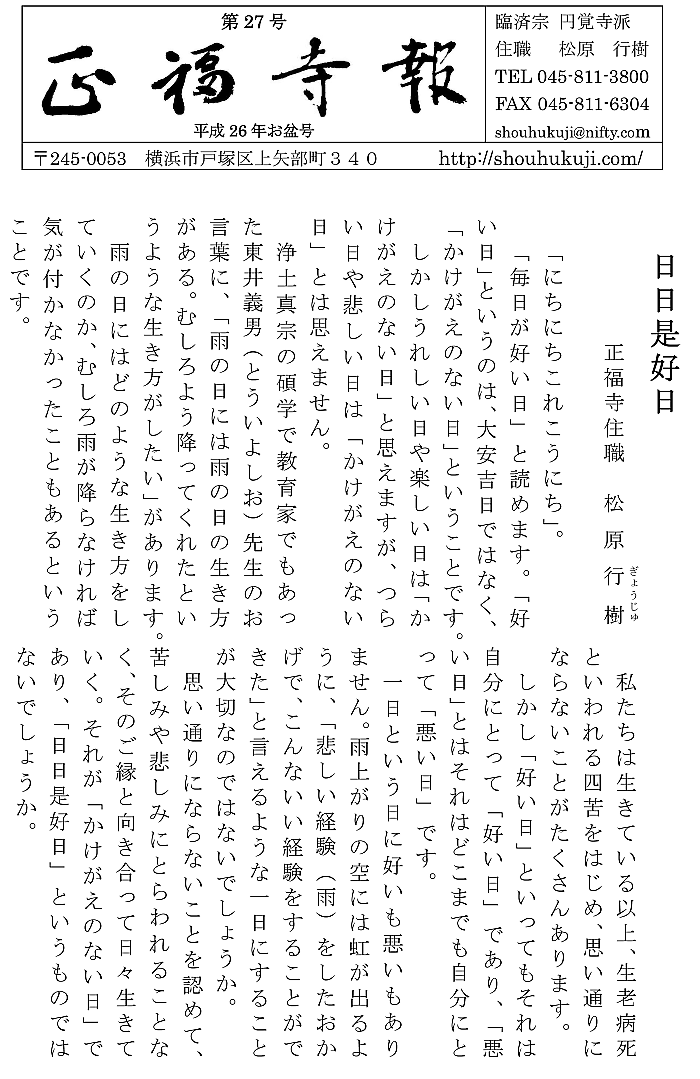 第27号
正福寺報
平成26年お盆号
臨済宗 円覚寺派
住職 松原 行樹
TEL 045-811-3800
FAX 045-811-6304
shouhukuji@nifty.com
〒245-0053 横浜市戸塚区上矢部町３４０ http://shouhukuji.com/
日日是好日
正福寺住職 松原行樹
ぎょうじゅ
「にちにちこれこうにち」。
「毎日が好い日」と読めます。「好
い日」というのは、大安吉日ではなく、
「かけがえのない日」ということです。
しかしうれしい日や楽しい日は「か
けがえのない日」と思えますが、つら
い日や悲しい日は「かけがえのない
日」とは思えません。
浄土真宗の碩学で教育家でもあっ
た東井義男（とういよしお）先生のお
言葉に、「雨の日には雨の日の生き方
がある。むしろよう降ってくれたとい
うような生き方がしたい」があります。
雨の日にはどのような生き方をし
ていくのか、むしろ雨が降らなければ
気が付かなかったこともあるという
ことです。
私たちは生きている以上、生老病死
といわれる四苦をはじめ、思い通りに
ならないことがたくさんあります。
しかし「好い日」といってもそれは
自分にとって「好い日」であり、「悪
い日」とはそれはどこまでも自分にと
って「悪い日」です。
一日という日に好いも悪いもあり
ません。雨上がりの空には虹が出るよ
うに、「悲しい経験（雨）をしたおか
げで、こんないい経験をすることがで
きた」と言えるような一日にすること
が大切なのではないでしょうか。
思い通りにならないことを認めて、
苦しみや悲しみにとらわれることな
く、そのご縁と向き合って日々生きて
いく。それが「かけがえのない日」で
あり、「日日是好日」というものでは
ないでしょうか。